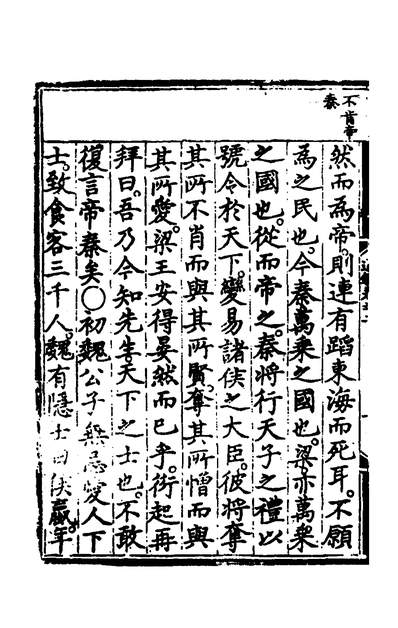 不肯帝
秦
然而為帝則連有蹈東海而死耳不願
為之民也今秦萬乘之國也梁亦萬乘
之國也從而帝之秦將行天子之禮以
號令於天下變易諸侯之大臣彼將奪
其所不肖而與其所賢奪其所憎而與
其所愛梁王安得晏然而已乎衍起再
拜曰吾乃今知先生天下之士也不敢
復言帝秦矣○初魏公子無忌愛人下
士致食客三千人魏有隱士曰侯嬴年